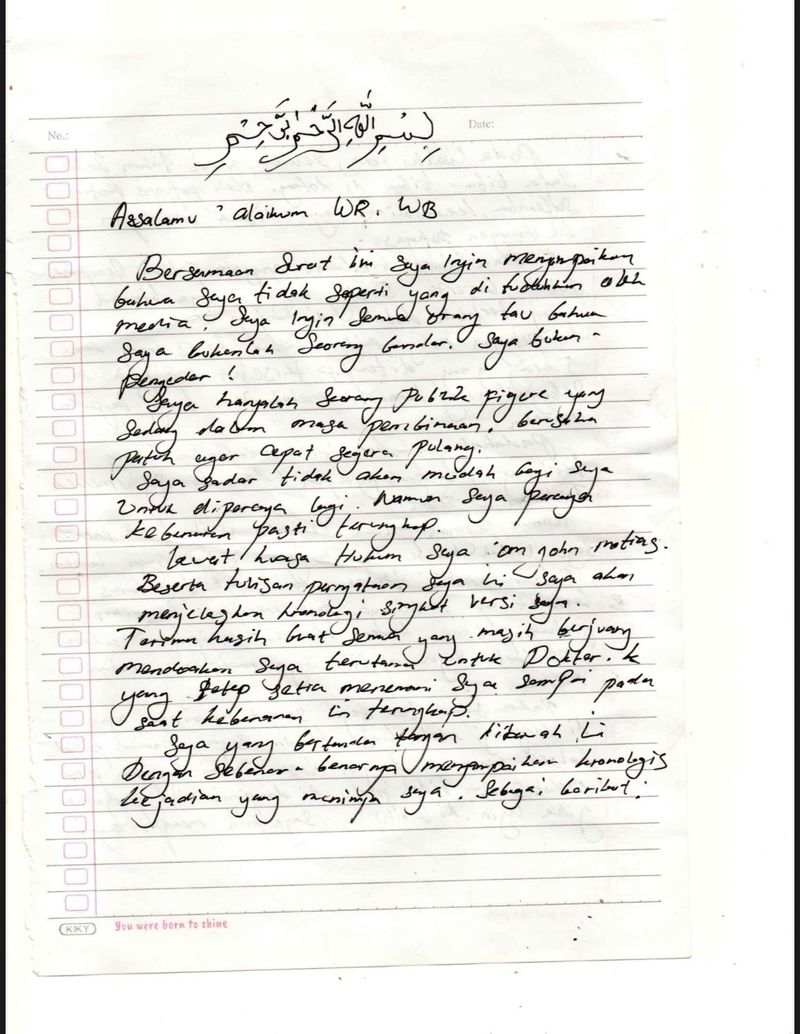 No.:
Date:
بِسْمِ اللَّهِ الرَّحْمَنِ الرَّحِيْمِ
Assalamu 'alaikum WR. WB
Bersamaan surat ini saya ingin menyampaikan
bahwa saya tidak seperti yang di tuduhkan oleh
media. Saya ingin semua orang tau bahwa
saya bukanlah seorang bandar. Saya bukan-
pengedar!
Saya hanyalah seorang publik figure yang
sedang dalam masa pembinaan. berusaha
patuh agar cepat segera pulang.
Saya sadar tidak akan mudah bagi saya
untuk dipercaya lagi. Namun saya percaya
kebenaran pasti terungkap.
Lewat kuasa Hukum saya 'om john matias.
Beserta tulisan pernyataan saya ini saya akan
menjelaskan kronologi singkat versi saya.
Terima kasih buat semua yang masih berjuang
mendoakan saya terutama untuk Dokter. K
yang tetap setia menemani saya sampai pada
saat kebenaran ini terungkap.
Saya yang bertanda tangan dibawah ini
Dengan sebenar-benarnya menyampaikan kronologis
kejadian yang menimpa saya. Sebagai berikut:
KIKY
You were born to shine